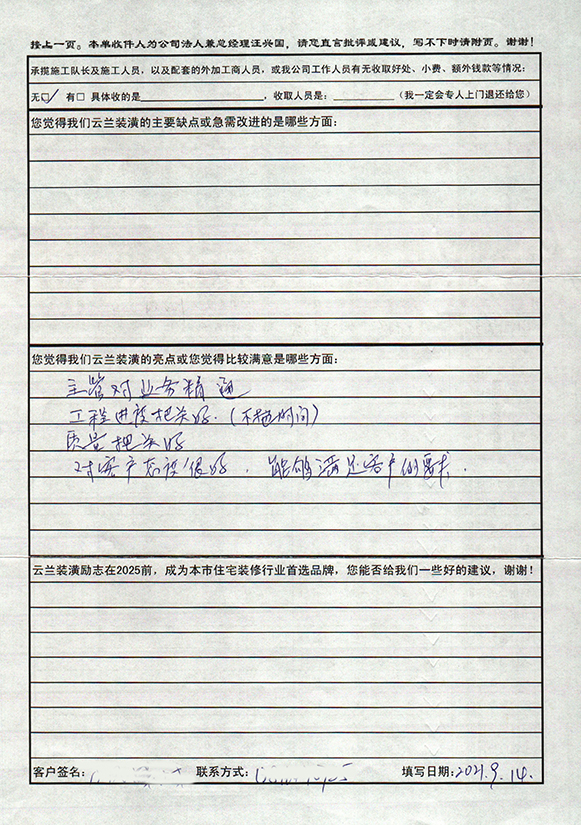 接上一页。本单收件人为公司法人兼总经理汪兴国，请您直言批评或建议，写不下时请附页。谢谢！
承揽施工队长及施工人员，以及配套的外加工商人员，或我公司工作人员有无收取好处、小费、额外钱款等情况：
无□✓ 有□ 具体收的是____________，收取人员是：______（我一定会专人上门退还给您）
您觉得我们云兰装潢的主要缺点或急需改进的是哪些方面：
您觉得我们云兰装潢的亮点或您觉得比较满意是哪些方面：
主管对业务精通
工程进度把关好.（不拖时间）
质量把关好
对客户态度很好，能够满足客户的要求.
云兰装潢励志在2025前，成为本市住宅装修行业首选品牌，您能否给我们一些好的建议，谢谢！
客户签名： 联系方式： 填写日期：2021.9.14.